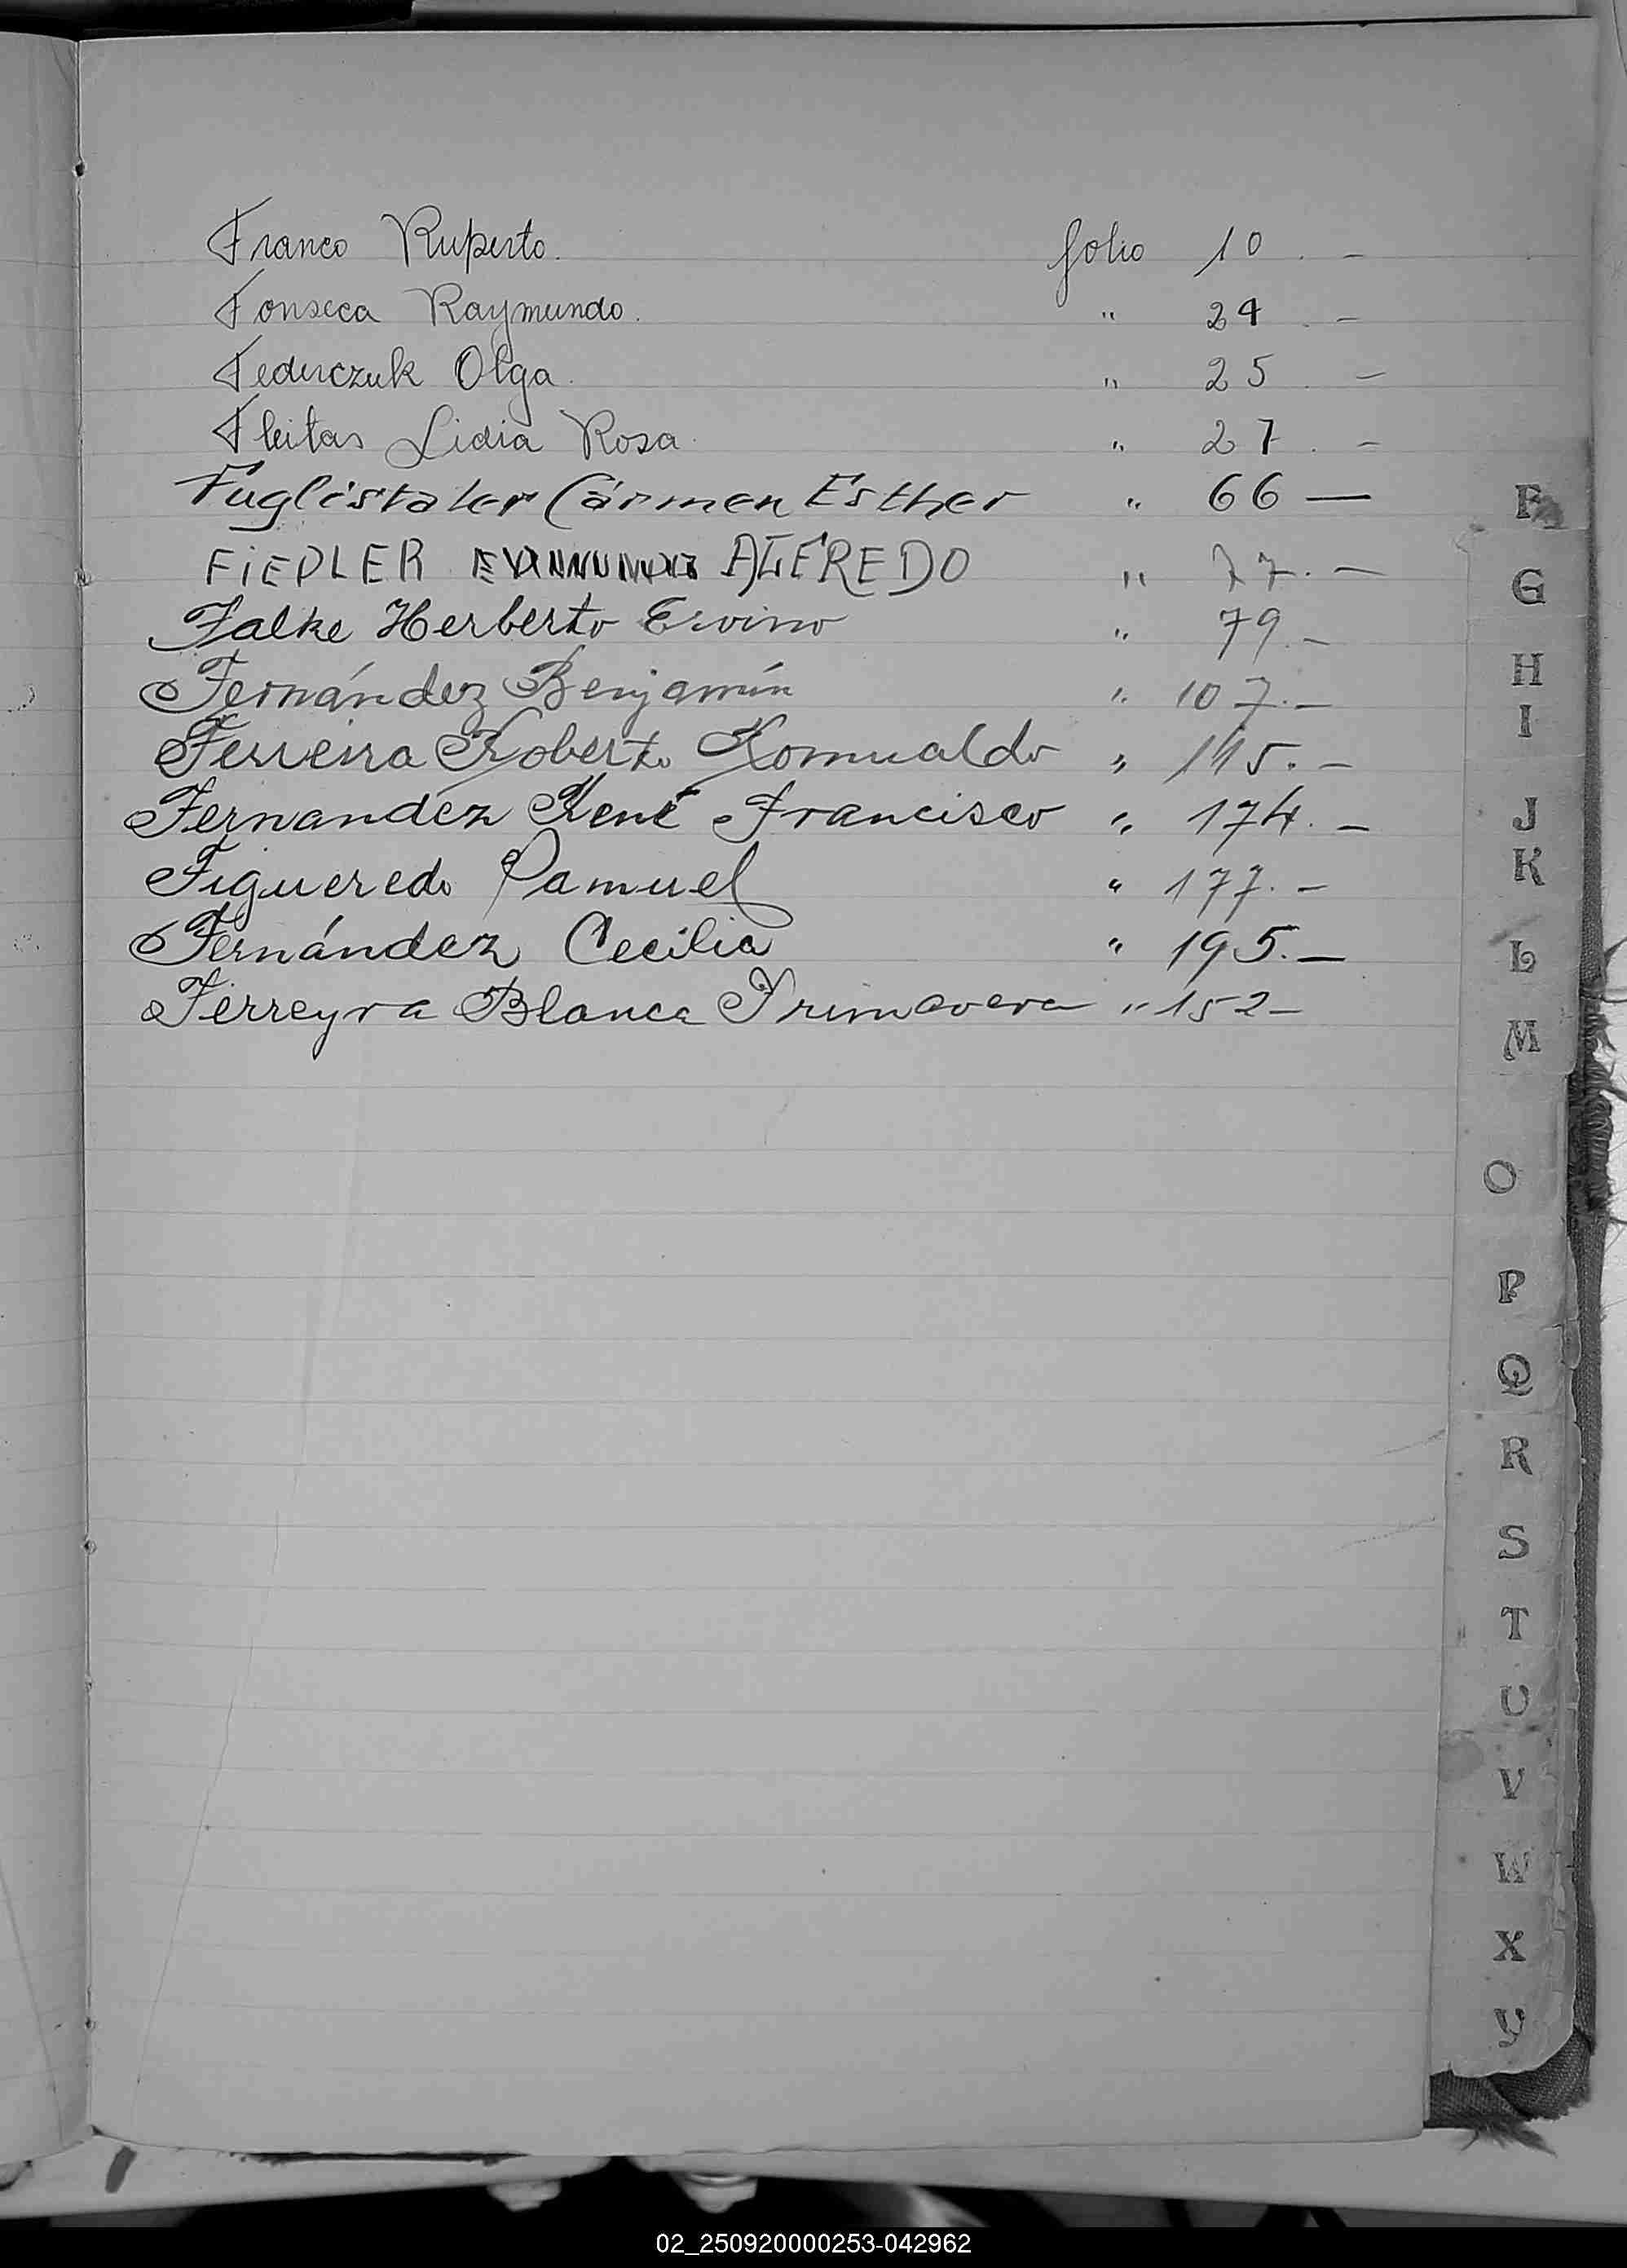 Franco Ruperto. folio 10. -
Fonseca Raymundo. " 24. -
Federczuk Olga. " 25. -
Fleitas Lidia Rosa. " 27. -
Fuglistaler Cármen Esther " 66 —
FiEDLER ALFREDO " 77. —
Falke Herberto Ervino " 79. -
Fernández Benjamín " 107. -
Ferreira Roberto Romualdo " 115. -
Fernandez René Francisco " 174. -
Figueredo Samuel " 177. -
Fernández Cecilia " 195. —
Ferreyra Blanca Primavera " 152 -
F
G
H
I
J
K
L
M
O
P
Q
R
S
T
U
V
W
X
Y
02_250920000253-042962